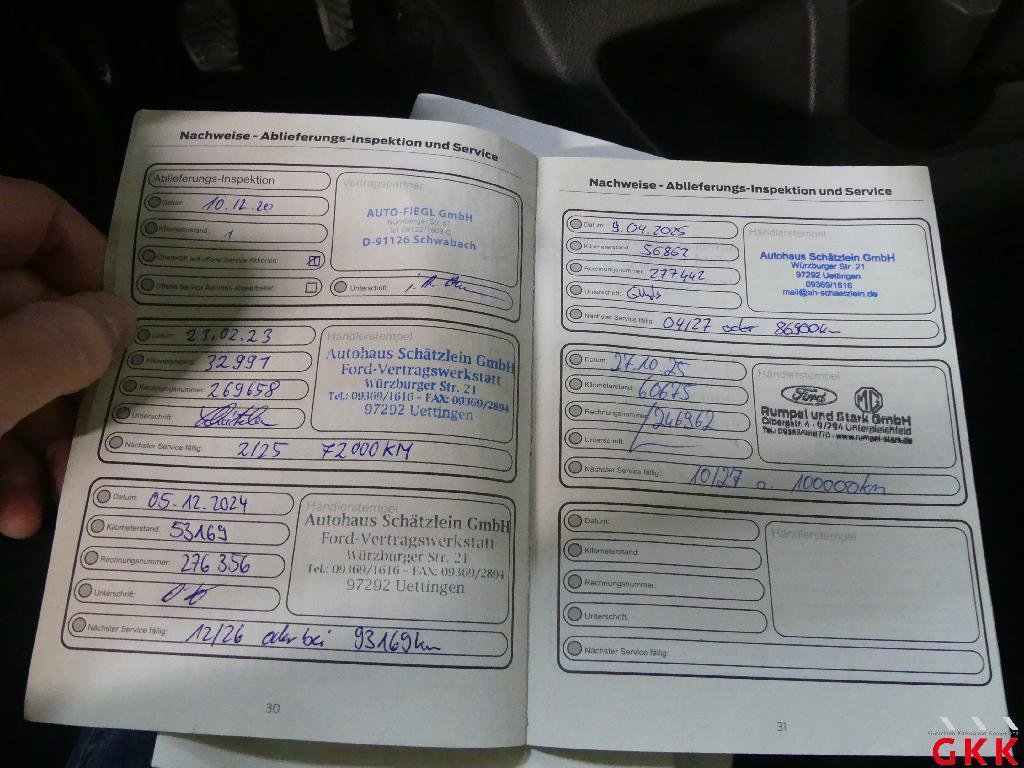 Nachweise - Ablieferungs-Inspektion und Service
Ablieferungs-Inspektion
Datum: 10.12.20
Kilometerstand: 1
Überprüft auf offene Service Aktionen:
Offene Service Aktionen abgearbeitet:
Vertragspartner
AUTO-FIEGL GmbH
Nürnberger Str.
D-91126 Schwabach
Unterschrift:
Datum: 23.02.23
Kilometerstand: 32991
Rechnungsnummer: 269658
Unterschrift:
Händlerstempel
Autohaus Schätzlein GmbH
Ford-Vertragswerkstatt
Würzburger Str. 21
Tel.: 09369/1616 - FAX: 09369/2894
97292 Uettingen
Nächster Service fällig: 2/25 72000KM
Datum: 05.12.2024
Kilometerstand: 53169
Rechnungsnummer: 276356
Unterschrift:
Händlerstempel
Autohaus Schätzlein GmbH
Ford-Vertragswerkstatt
Würzburger Str. 21
Tel.: 09369/1616 - FAX: 09369/2894
97292 Uettingen
Nächster Service fällig: 12/26 oder bei 93169km
30
Nachweise - Ablieferungs-Inspektion und Service
Datum: 9.04.2025
Kilometerstand: 56862
Rechnungsnummer: 277442
Unterschrift:
Händlerstempel
Autohaus Schätzlein GmbH
Würzburger Str. 21
97292 Uettingen
09369/1616
mail@ah-schaetzlein.de
Nächster Service fällig: 04/27 oder 86900km
Datum: 27.10.25
Kilometerstand: 60675
Rechnungsnummer: 246962
Unterschrift:
Händlerstempel
Ford MG
Rumpel und Stark GmbH
Olbergstr. 4 · 97294 Unterpleichfeld
www.rumpel-stark.de
Nächster Service fällig: 10/27 o. 100000km
Datum:
Kilometerstand:
Rechnungsnummer:
Unterschrift:
Händlerstempel
Nächster Service fällig:
31
GKK